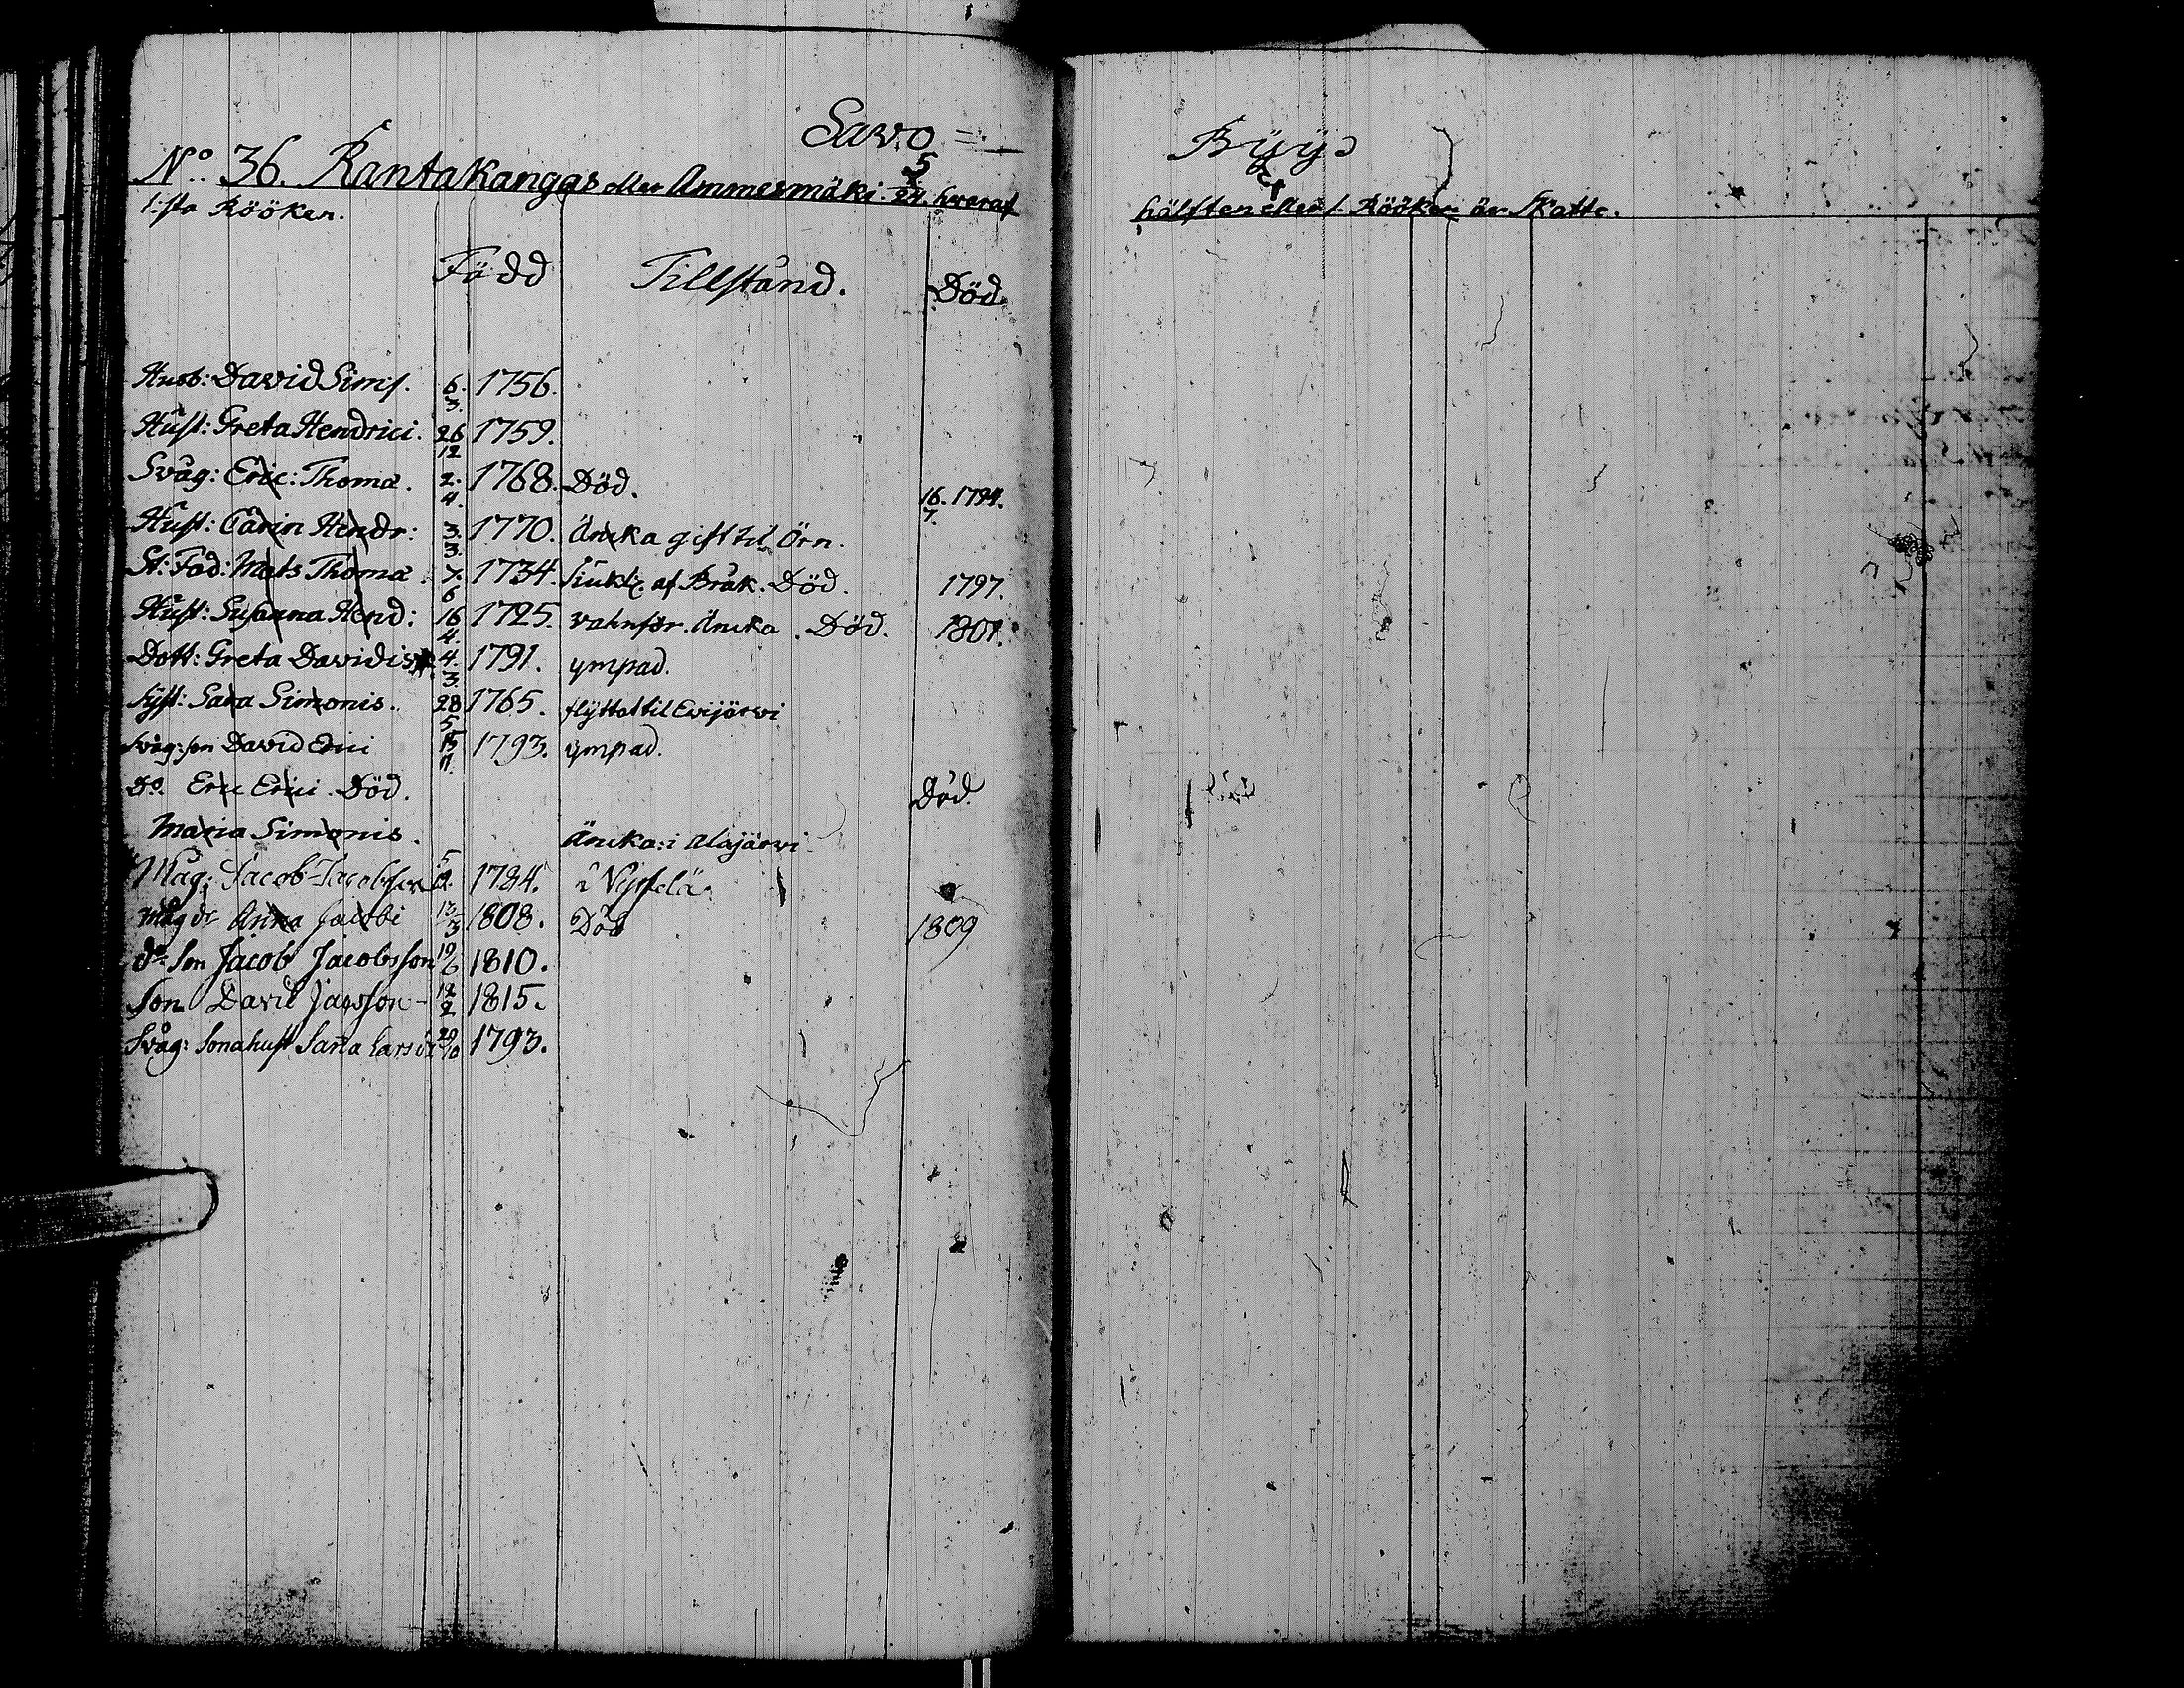 Savo =
Byys
N:o 36. Rantakangas eller Ammesmäki. 5/24. hvaraf
hälften eller 1. Rööken är Skatte.
1:sta Rööken.
Född Tillstånd. Död
Husb: David Sims. 6. 3. 1756.
Hust: Greta Hendrici. 26 12 1759.
Svåg: Eric: Thomæ. 2. 4. 1768. Död. 16. 7. 1794.
Hust: Carin Hendr: 3. 3. 1770. Äncka gift til Örn.
St: Fad: Mats Thomæ 7. 6 1734. siukl: af Bråk. Död. 1797.
Hust: Susanna Hend: 16 4. 1725. vahnför. Äncka. Död. 1801.
Dott: Greta Davidis 4. 3. 1791. ympad.
Syst: Sara Simonis. 28 5 1765. flyttat til Evijärvi
Svåg: son David Erici 15 11. 1793. ympad.
D:o Eric Erici. Död. Död.
Maria Simonis. Äncka: i Alajärvi
Måg: Jacob Jacobsson 5 12. 1784. i Nyselä
Måg dr Anna Jacobi 13 3 1808. Död 1809
d:o Son Jacob Jacobsson 19/6 1810.
Son David Jacsson - 12 2 1815.
Svåg: Sonahust Sanna Larsdr 20/10 1793.